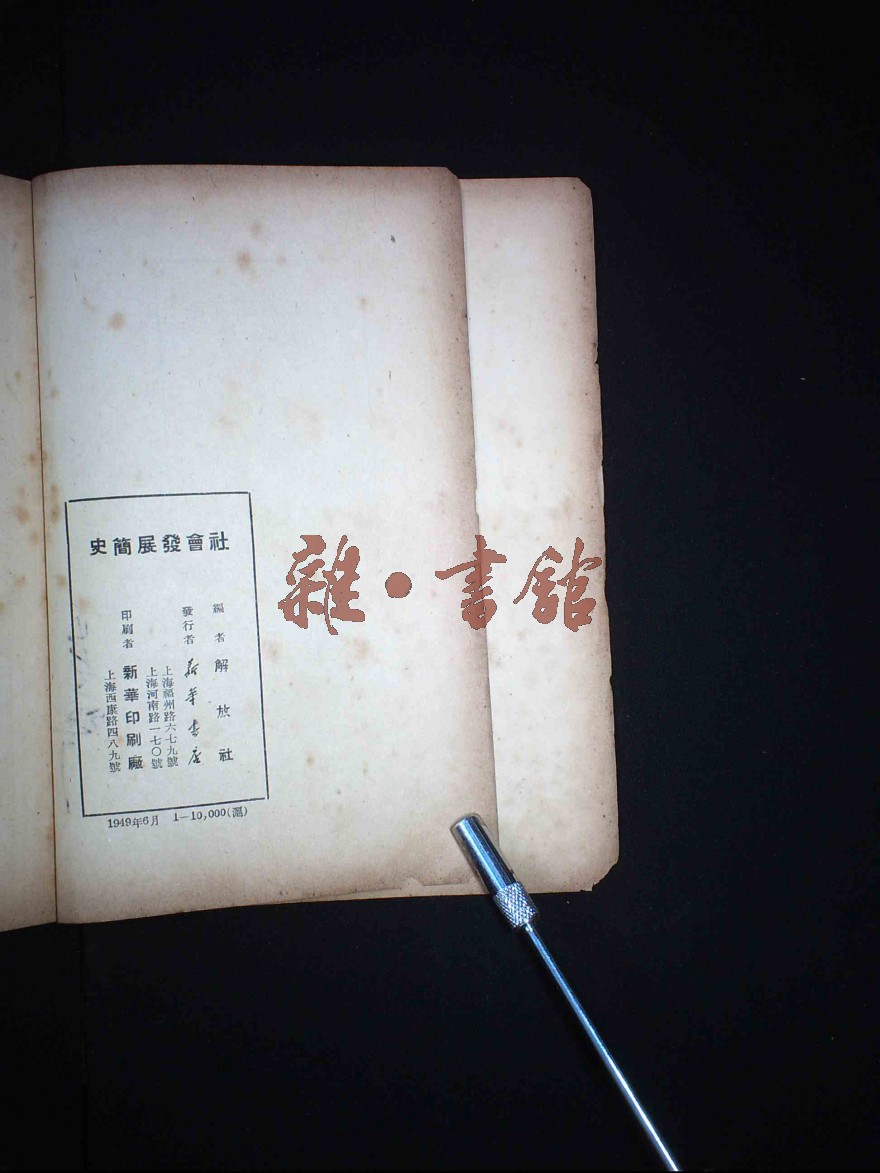 史簡展發會社
編者 解放社
發行者 新華書店
上海福州路六七九號
上海河南路一七〇號
印刷者 新華印刷廠
上海西康路四八九號
1949年6月 1—10,000(滬)
雜·書館